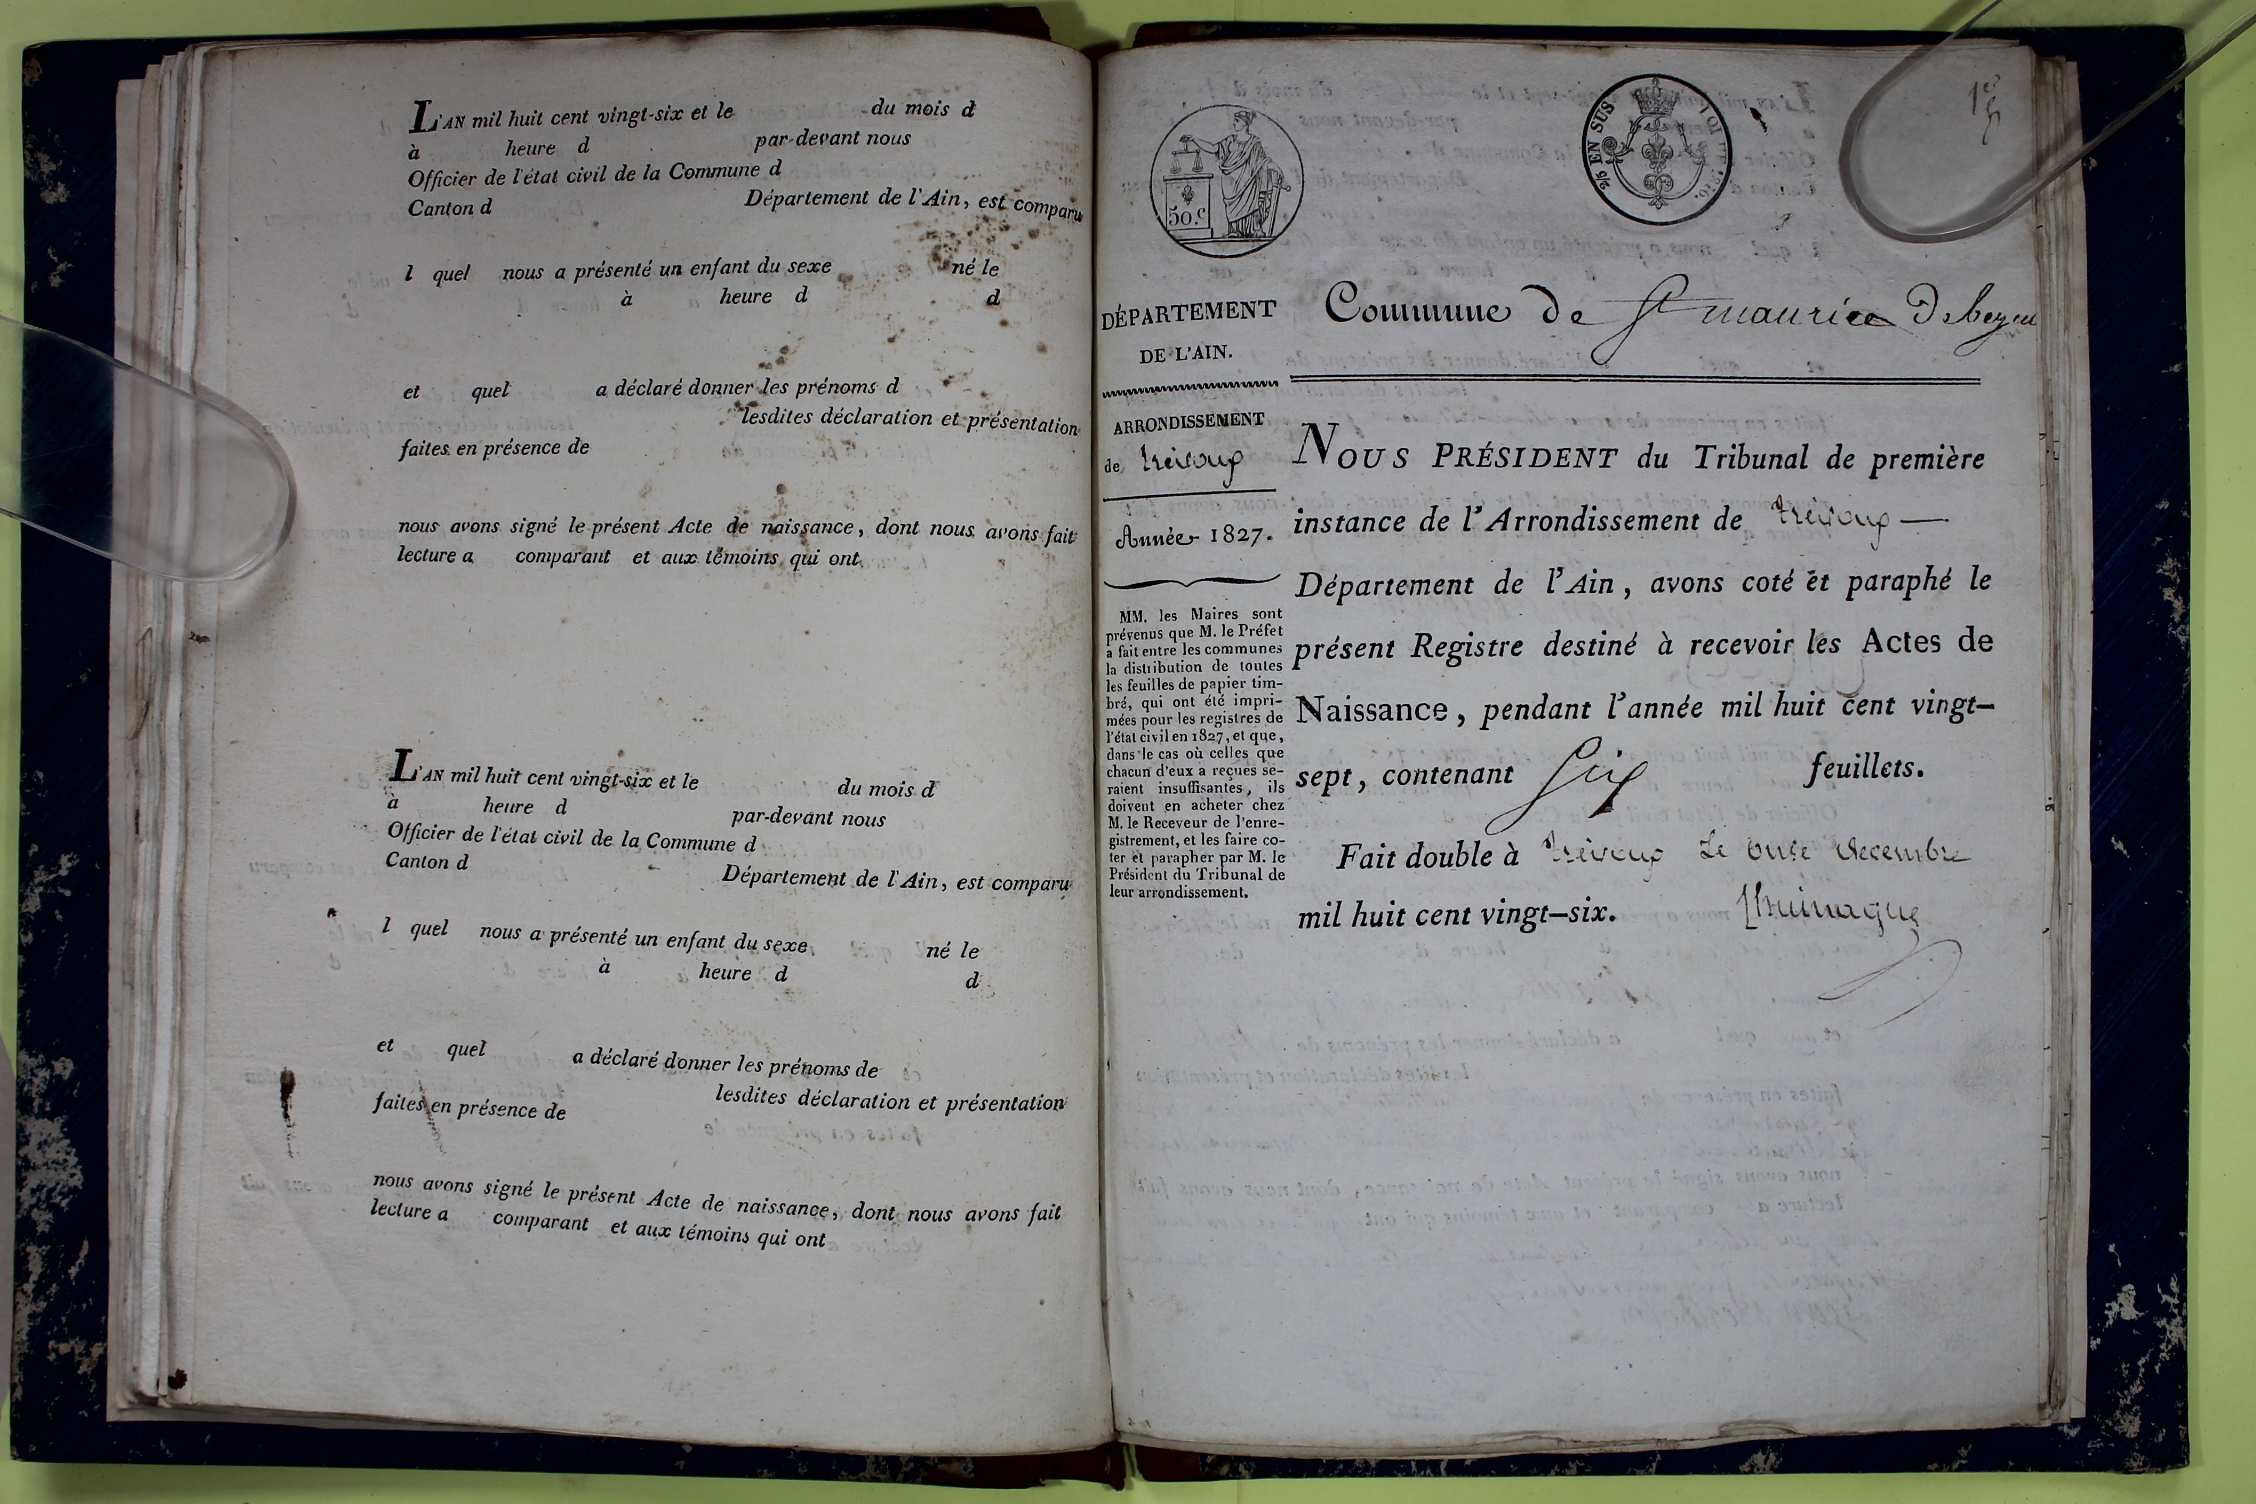 L'AN mil huit cent vingt-six et le du mois d
à heure d par-devant nous
Officier de l'état civil de la Commune d
Canton d Département de l'Ain, est comparu
l quel nous a présenté un enfant du sexe né le
à heure d d
et quel a déclaré donner les prénoms d
lesdites déclaration et présentation
faites en présence de
nous avons signé le présent Acte de naissance, dont nous avons fait
lecture a comparant et aux témoins qui ont
L'AN mil huit cent vingt-six et le du mois d
à heure d par-devant nous
Officier de l'état civil de la Commune d
Canton d Département de l'Ain, est comparu
l quel nous a présenté un enfant du sexe né le
à heure d d
et quel a déclaré donner les prénoms de
lesdites déclaration et présentation
faites en présence de
nous avons signé le présent Acte de naissance, dont nous avons fait
lecture a comparant et aux témoins qui ont
50.c
2/5 EN SUS LOI
DÉPARTEMENT
DE L'AIN.
ARRONDISSEMENT
de Trévoux
Année 1827.
MM. les Maires sont
prévenus que M. le Préfet
a fait entre les communes
la distribution de toutes
les feuilles de papier tim-
bré, qui ont été impri-
mées pour les registres de
l'état civil en 1827, et que,
dans le cas où celles que
chacun d'eux a reçues se-
raient insuffisantes, ils
doivent en acheter chez
M. le Receveur de l'enre-
gistrement, et les faire co-
ter et parapher par M. le
Président du Tribunal de
leur arrondissement.
Commune de St maurice De beynost
NOUS PRÉSIDENT du Tribunal de première
instance de l'Arrondissement de Trévoux
Département de l'Ain, avons coté et paraphé le
présent Registre destiné à recevoir les Actes de
Naissance, pendant l'année mil huit cent vingt-
sept, contenant Six feuillets.
Fait double à Trévoux Le onze decembre
mil huit cent vingt-six.